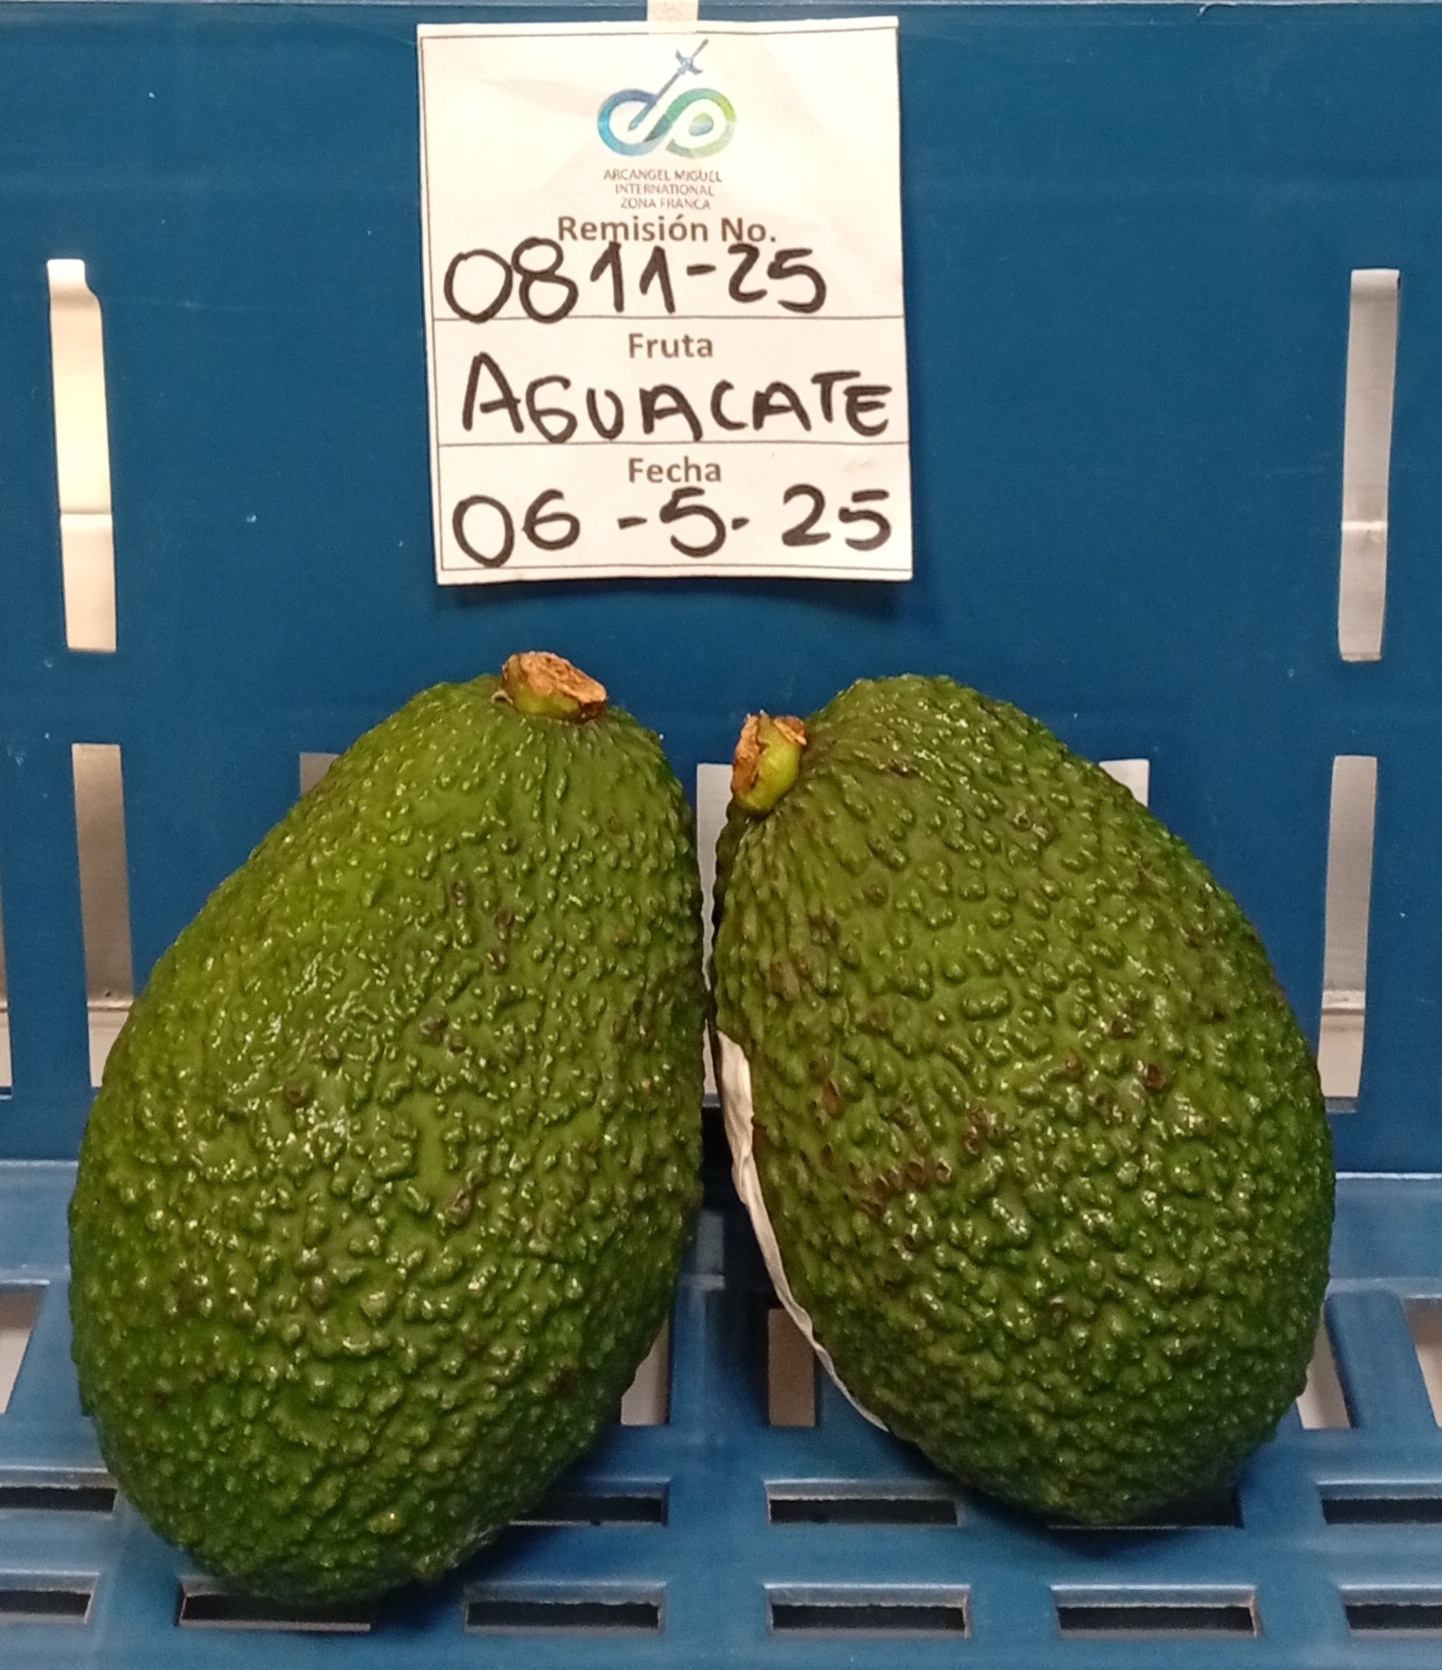 ARCANGEL MIGUEL
INTERNATIONAL
ZONA FRANCA
Remisión No.
0811-25
Fruta
AGUACATE
Fecha
06-5-25